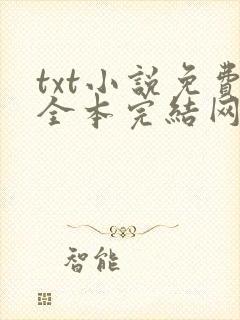 txt小説免費
全本完結网
智能